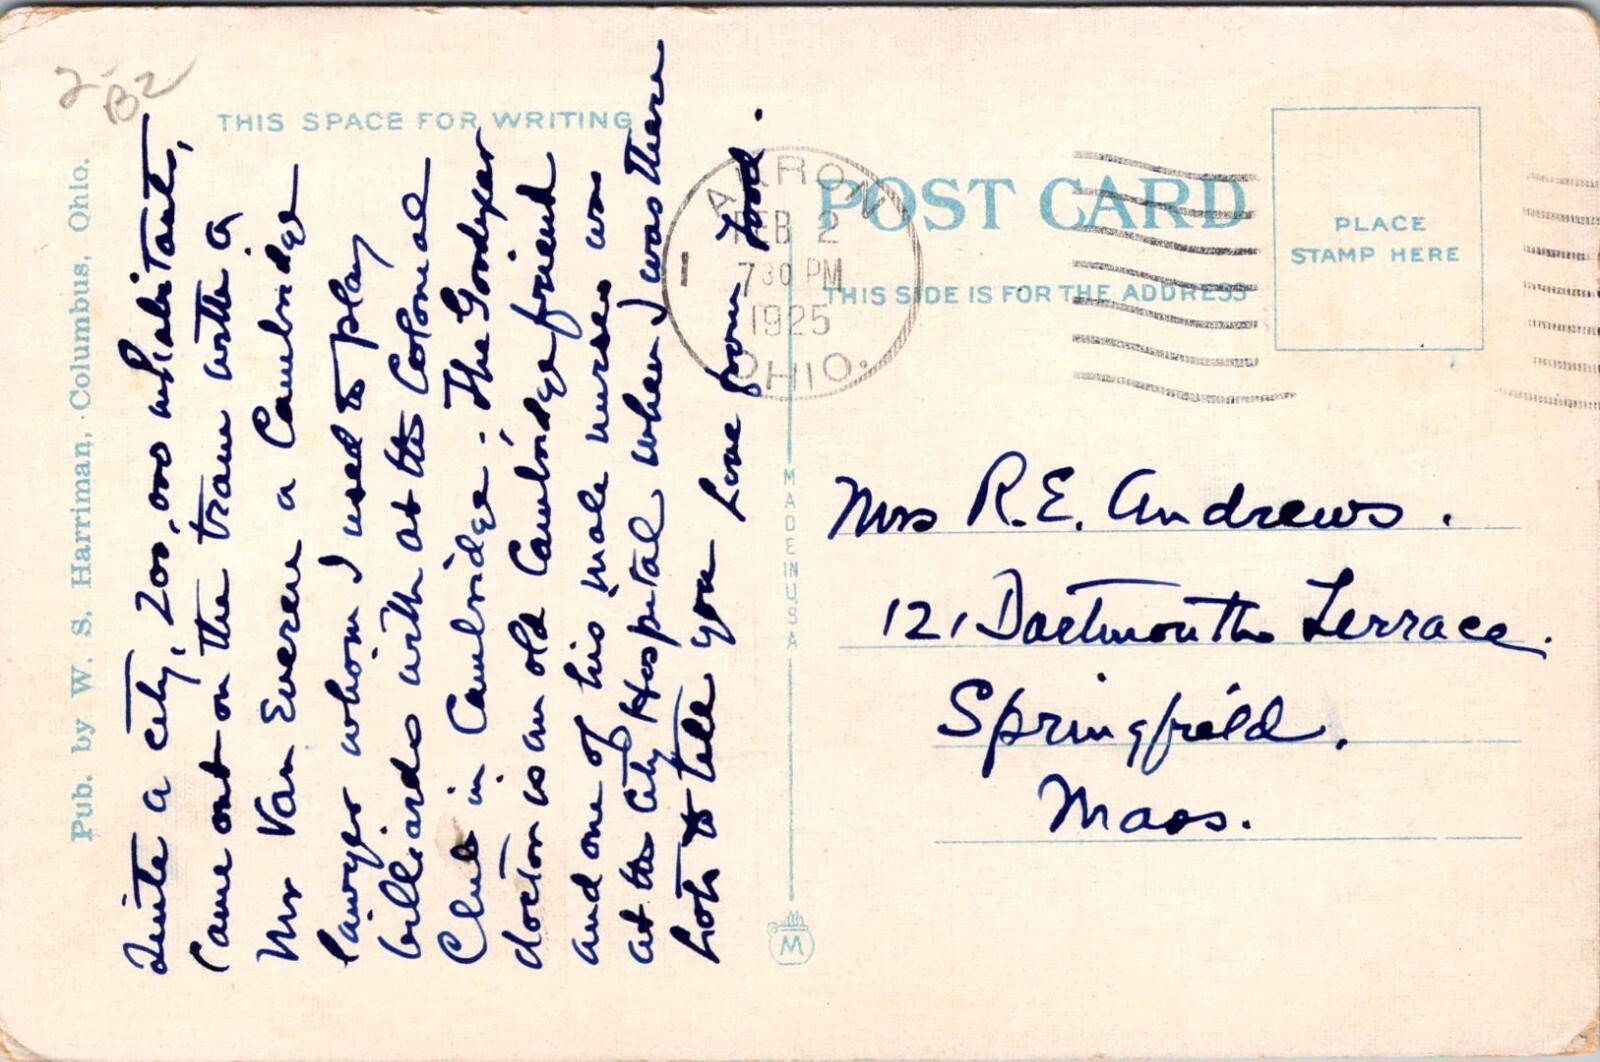 2-
B2
THIS SPACE FOR WRITING
Pub. by W. S. Harriman, Columbus, Ohio.
Quite a city, 200,000 inhabitants,
Came out on the train with a
Mr Van Everen a Cambridge
lawyer whom I used to play
billiards with at the Colonial
Club in Cambridge; The Goodyear
doctor is an old Cambridge friend
and one of his male nurses was
at the City Hospital when I was there
Lots to tell you Love from
AKRON
FEB 2
730 PM
1925
OHIO.
1
POST CARD
THIS SIDE IS FOR THE ADDRESS
PLACE
STAMP HERE
MADE IN U.S.A
M
Mrs R.E. Andrews.
121 Dartmouth Terrace.
Springfield.
Mass.